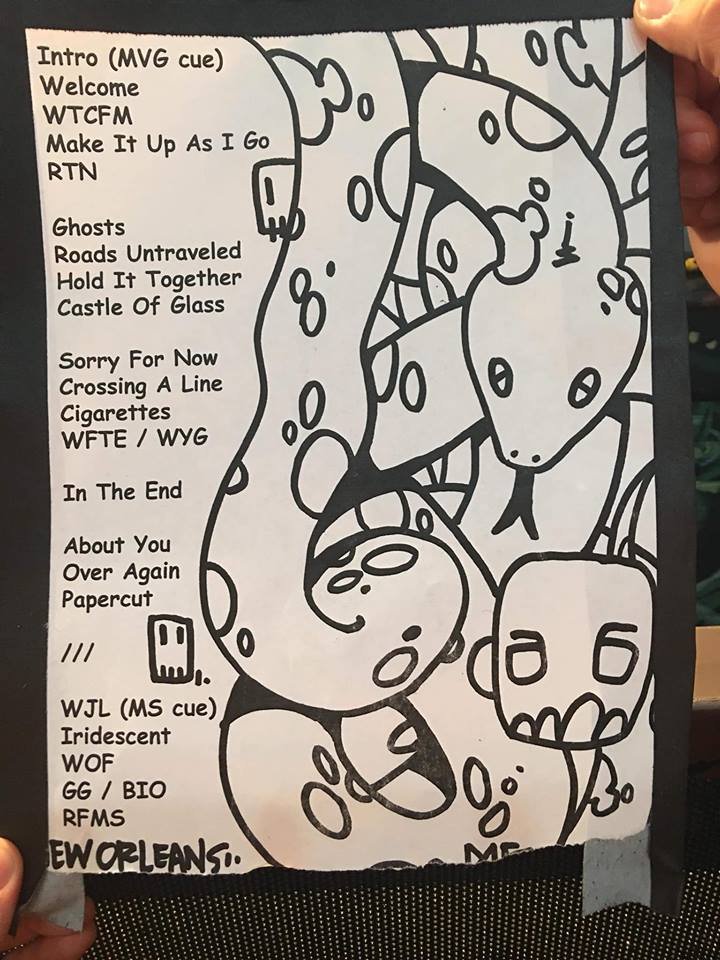 Intro (MVG cue)
Welcome
WTCFM
Make It Up As I Go
RTN
Ghosts
Roads Untraveled
Hold It Together
Castle Of Glass
Sorry For Now
Crossing A Line
Cigarettes
WFTE / WYG
In The End
About You
Over Again
Papercut
///
WJL (MS cue)
Iridescent
WOF
GG / BIO
RFMS
EW ORLEANS..